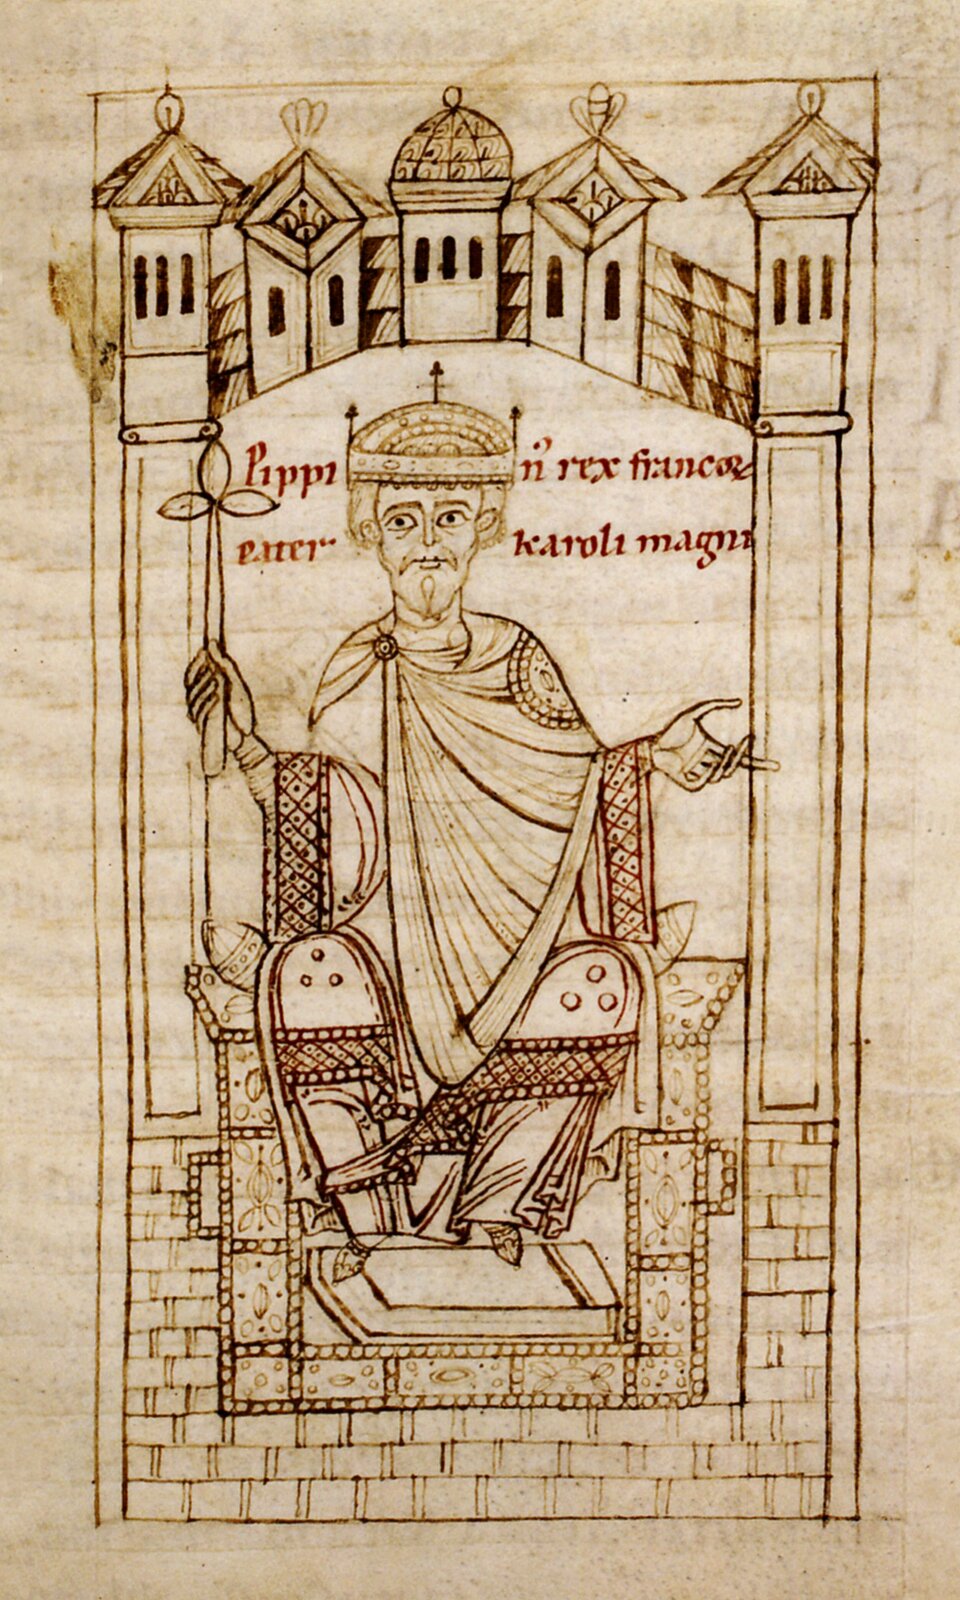 Pippin᷒ rex francoꝝ
pater karoli magni